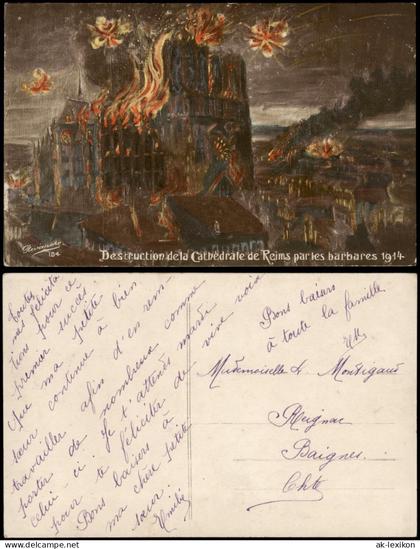 184
Destruction de la Cathédrale de Reims par les barbares 1914.
Toutes
nos félicita
tions pour ce
premier succès.
Que ma petite
sœur continue à bien
travailler afin d'en rem-
porter de nombreux comme
celui-ci. Je t'attends mardi
pour te féliciter de vive voix
Bons baisers à
ma chère petite
sœur.
Bons baisers
à toute la famille
Mademoiselle L. Montigaud
Reignac
Baignes
Chte
ak-lexikon
© ak-lexikon.de